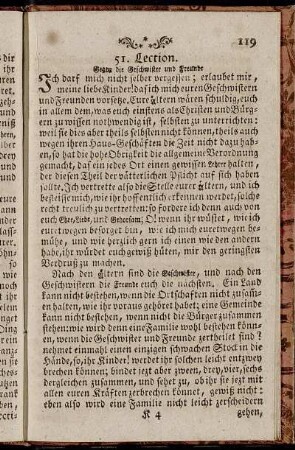 119
51. Lection.
Gegen die Geschwister und Freunde
Ich darf mich nicht selber vergessen; erlaubet mir,
meine liebe Kinder! daß ich mich euren Geschwistern
und Freunden vorsetze. Eure Eltern wären schuldig, euch
in allem dem, was euch einstens als Christen und Bürg-
ern zu wissen nothwendig ist, selbsten zu unterrichten:
weil sie dies aber theils selbsten nicht können, theils auch
wegen ihren Haus-Geschäften die Zeit nicht dazu hab-
en, so hat die hohe Obrigkeit die allgemeine Verordnung
gemacht, daß ein jedes Ort einen gewissen Lehrer halten,
der diesen Theil der vätterlichen Pflicht auf sich haben
sollte. Ich vertrette also die Stelle eurer Eltern, und ich
bestrebe mich, wie ihr hoffentlich erkennen werdet, solche
recht treulich zu vertretten: so fordere ich denn auch von
euch Ehre, Liebe, und Gehorsam; O! wenn ihr wüstet, wie ich
euretwegen besorgt bin, wie ich mich euretwegen be-
mühe, und wie herzlich gern ich einen wie den andern
habe, ihr würdet euch gewiß hüten, mir den geringsten
Verdruß zu machen.
Nach den Eltern sind die Geschwister, und nach den
Geschwistern die Freunde euch die nächsten. Ein Land
kann nicht bestehen, wenn die Ortschaften nicht zusam-
en halten, wie ihr voraus gehöret habet; eine Gemeinde
kann nicht bestehen, wenn nicht die Bürger zusammen
stehen: wie wird denn eine Familie wohl bestehen könn-
en, wenn die Geschwister und Freunde zertheilet sind?
nehmet einmahl euren einzigen schwachen Stock in die
Hände, so, ihr Kinder! werdet ihr solchen leicht entzwey
brechen können; bindet jezt aber zween, drey, vier, sechs
dergleichen zusammen, und sehet zu, ob ihr sie jezt mit
allen euren Kräften zerbrechen könnet, gewiß nicht:
eben also wird eine Familie nicht leicht zerscheidern
K 4
gehen,